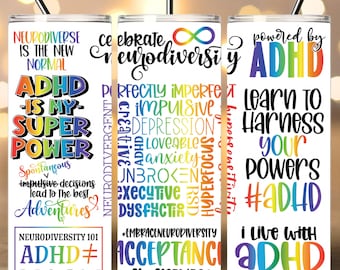 NEURODIVERSE
IS THE NEW
NORMAL
ADHD
IS MY
SUPER
POWER
Spontaneous
impulsive decisions
lead to the best
Adventures
NEURODIVERSITY 101
ADHD ≠
celebrate
neurodiversity
PERFECTLY IMPERFECT
NEURODIVERGENT
creative
impulsive
DEPRESSION
ADHD LOVEABLE
anxiety
UNBROKEN
executive
DYSFUNCTION
HYPERFOCUS
RSD
hypersensitivity
#EMBRACENEURODIVERSITY
ACCEPTANCE
powered by
ADHD
LEARN TO
HARNESS
your
POWERS
#ADHD
i live with
adhd